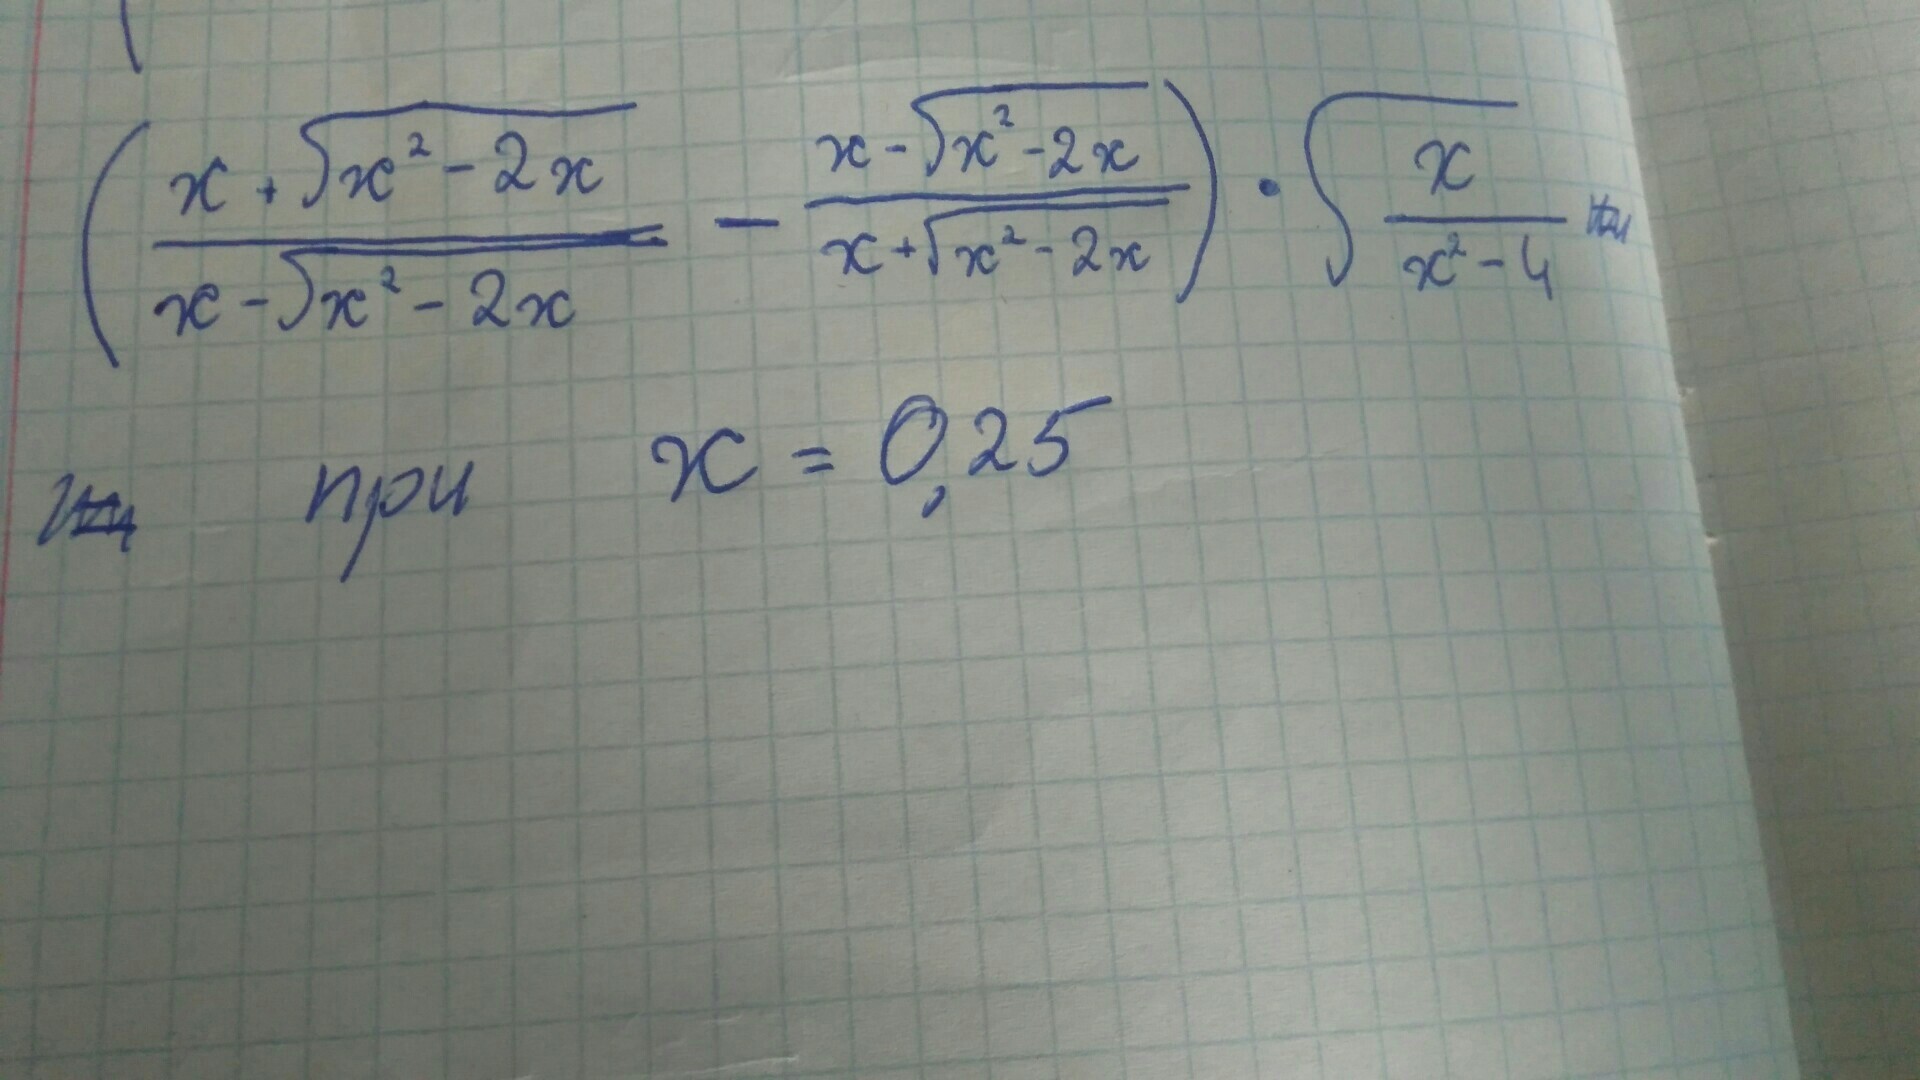 ( (x + √(x² - 2x)) / (x - √(x² - 2x)) - (x - √(x² - 2x)) / (x + √(x² - 2x)) ) · √(x / (x² - 4))
при x = 0,25